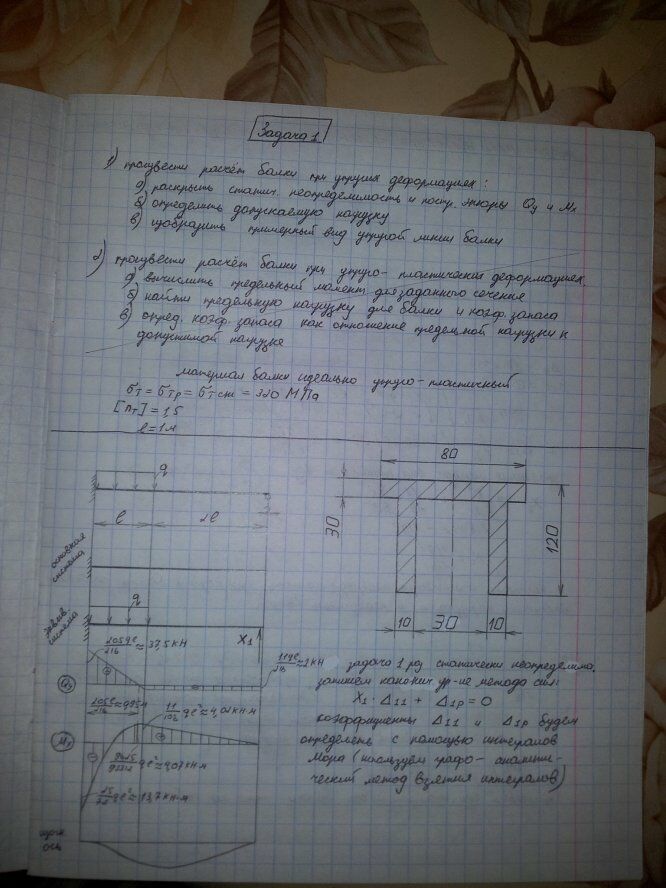 Задача 1
1) произвести расчёт балки при упругих деформациях:
а) раскрыть статич. неопределимость и постр. эпюры Qy и Mx
б) определить допускаемую нагрузку
в) изобразить примерный вид упругой линии балки
2) произвести расчёт балки при упруго-пластических деформациях.
а) вычислить предельный момент для заданного сечения
б) найти предельную нагрузку для балки и коэф. запаса
в) опред. коэф. запаса как отношение предельной нагрузки к
допустимой нагрузке
материал балки идеально упруго-пластичный
σт = σтр = σтсж = 320 МПа
[nт] = 1,5
l = 1м
q
l
2l
80
30
120
10
30
10
основная
система
эквив.
система
q
X1
205ql/216 ≈ 37,5 кН
11ql/216 ≈ 2 кН
Qy
205l/216 ≈ 0,95м
11/108 ql² ≈ 4,02 кН·м
Mx
задача 1 раз статически неопределима.
запишем канонич. ур-ие метода сил:
X1 · Δ11 + Δ1p = 0
коэффициенты Δ11 и Δ1p будем
определять с помощью интегралов
Мора (используем графо-аналити-
ческий метод взятия интегралов)
ось